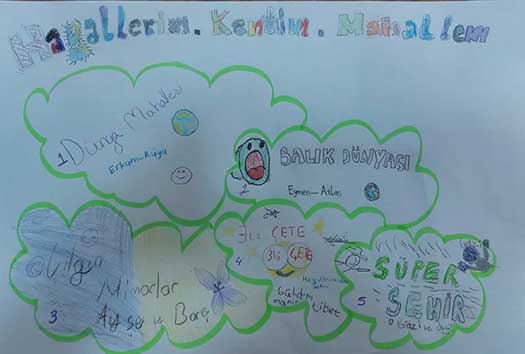 Hayallerim. Kentim. Mahallem
1 Dünya Mahallesi
Erkam-Rüya
2 BALIK DÜNYASI
Eymen-Atlas
3
Çılgın
Mimarlar
Ayşe ve Barış
4
3Lİ ÇETE
3lü ÇETE
Gültden
tibet
5 SÜPER
ŞEHİR